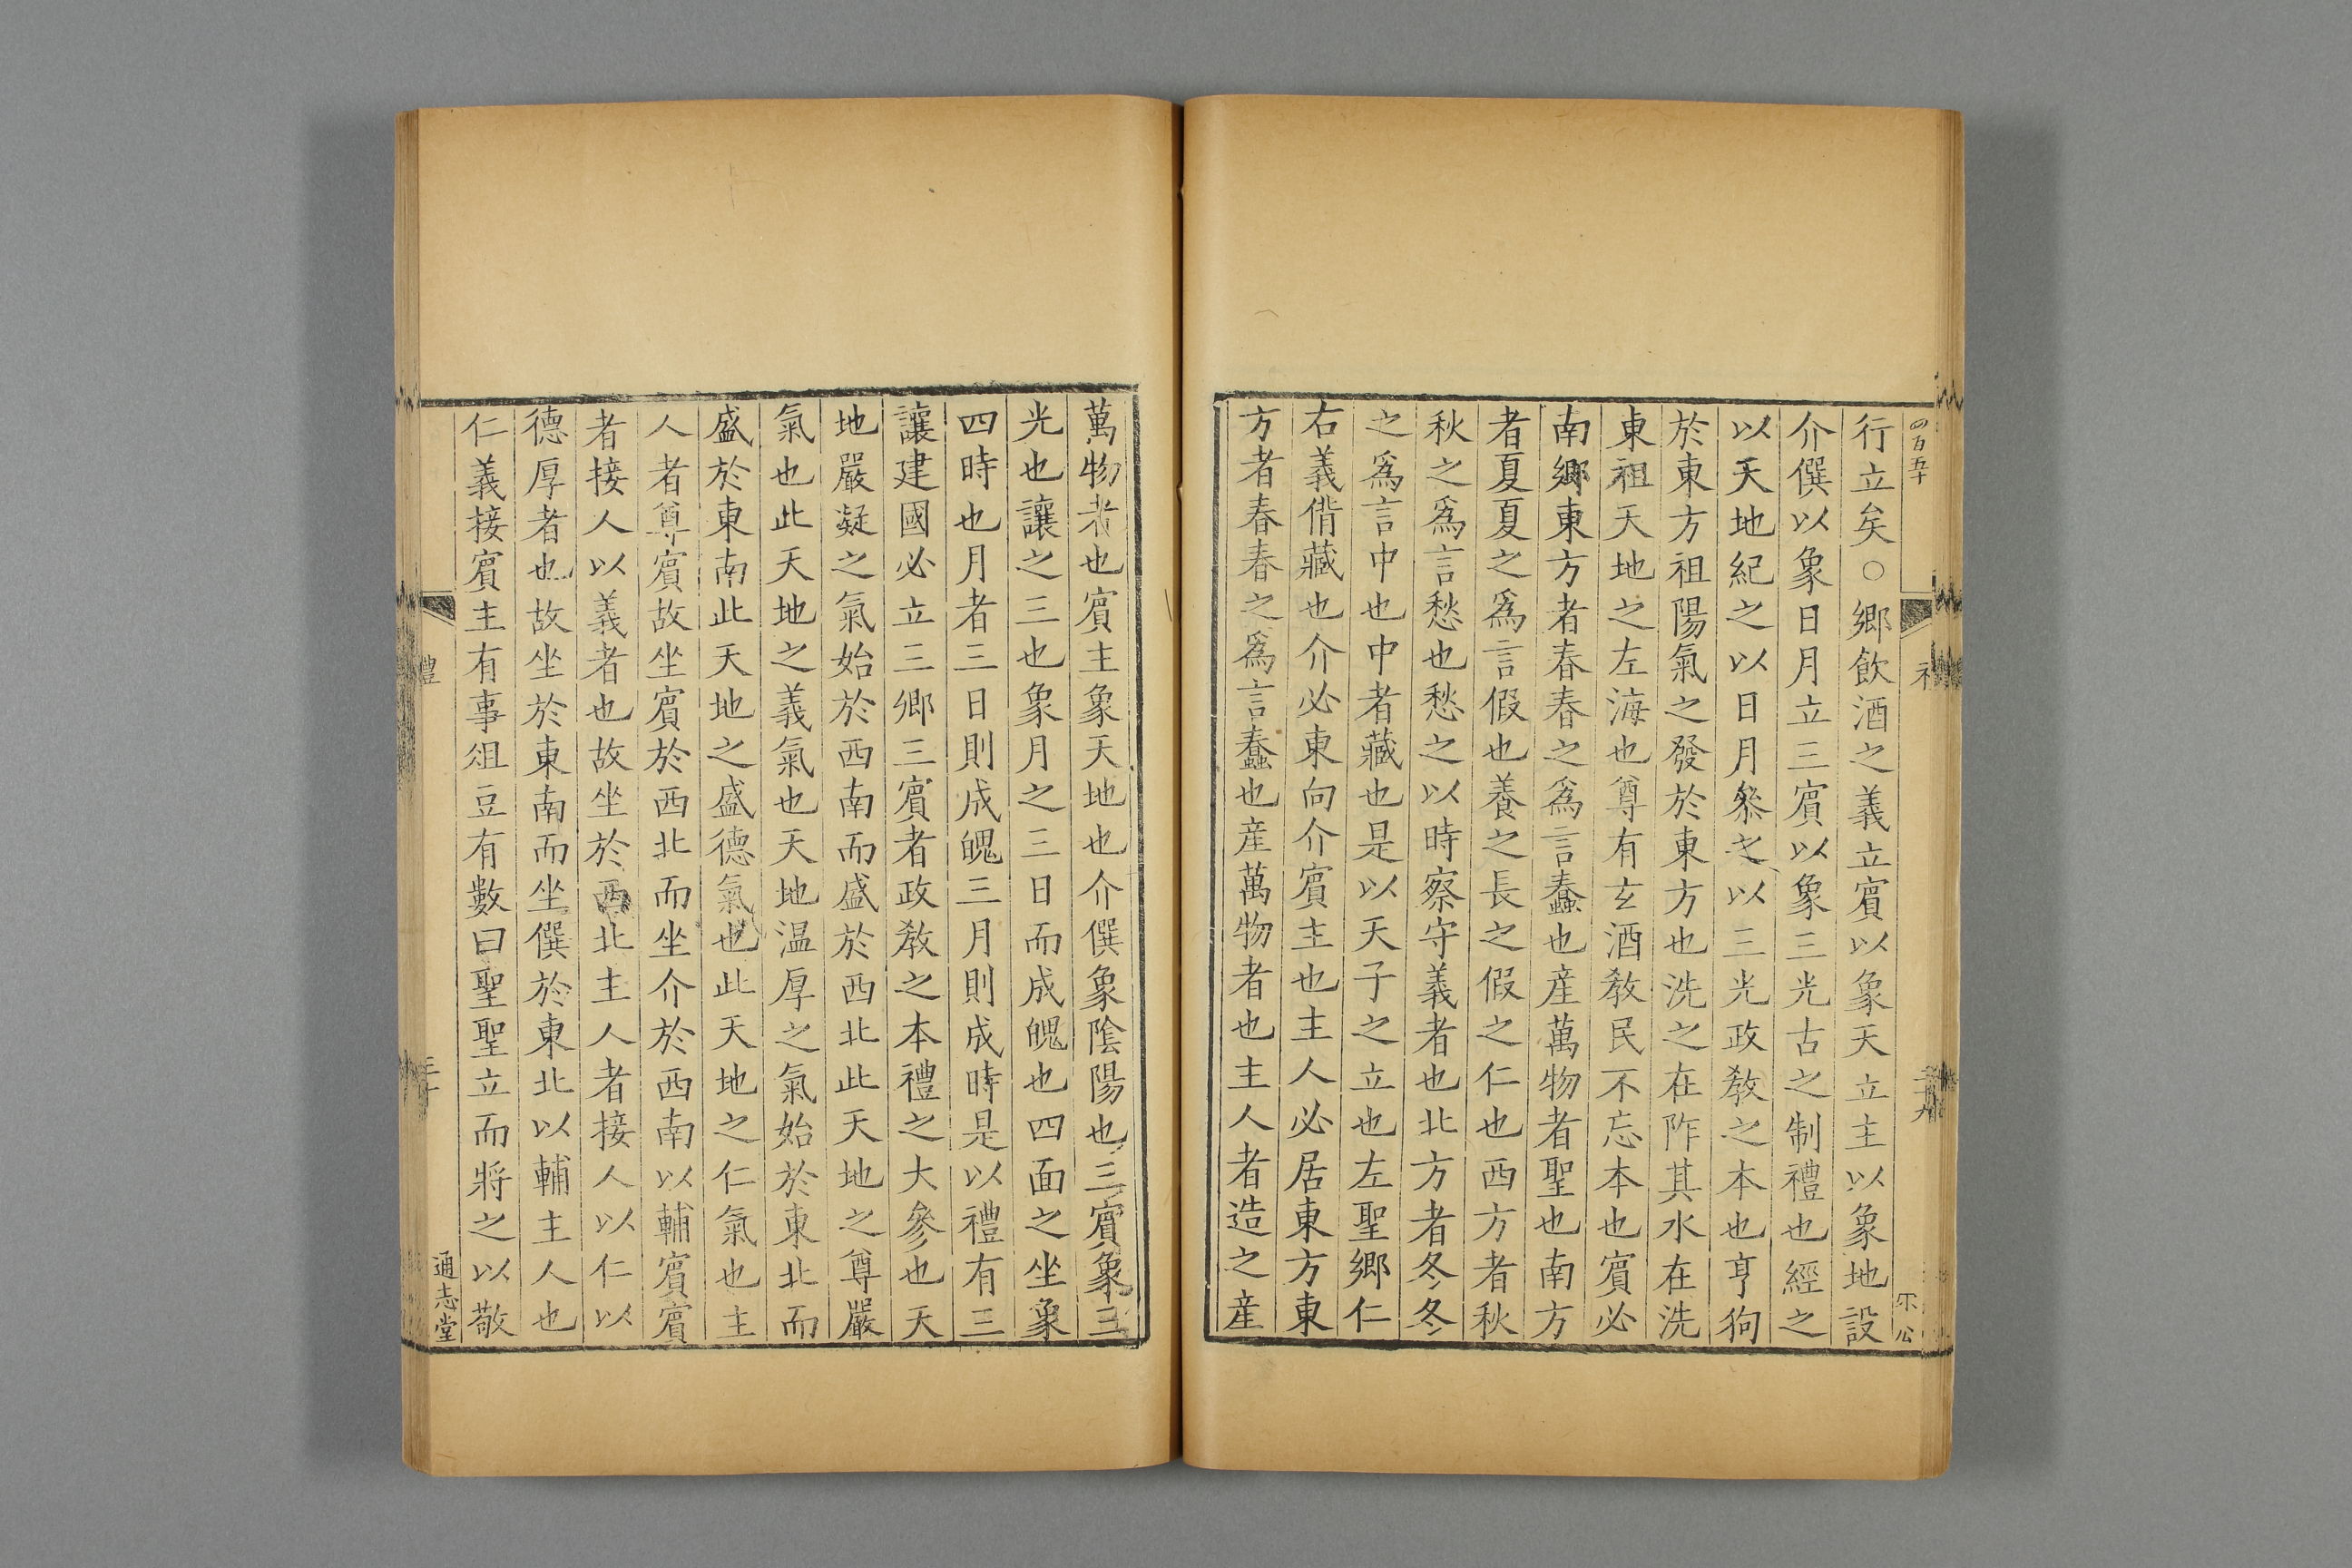 四百五十
行立矣○鄉飲酒之義立賓以象天立主以象地設
介僎以象日月立三賓以象三光古之制禮也經之
以天地紀之以日月叅之以三光政敎之本也亨狗
於東方祖陽氣之發於東方也洗之在阼其水在洗
東祖天地之左海也尊有玄酒敎民不忘本也賓必
南鄉東方者春春之爲言蠢也産萬物者聖也南方
者夏夏之爲言假也養之長之假之仁也西方者秋
秋之爲言愁也愁之以時察守義者也北方者冬冬
之爲言中也中者藏也是以天子之立也左聖鄉仁
右義偝藏也介必東向介賓主也主人必居東方東
方者春春之爲言蠢也産萬物者也主人者造之産
萬物者也賓主象天地也介僎象陰陽也三賓象三
光也讓之三也象月之三日而成魄也四面之坐象
四時也月者三日則成魄三月則成時是以禮有三
讓建國必立三卿三賓者政敎之本禮之大參也天
地嚴凝之氣始於西南而盛於西北此天地之尊嚴
氣也此天地之義氣也天地温厚之氣始於東北而
盛於東南此天地之盛德氣也此天地之仁氣也主
人者尊賓故坐賓於西北而坐介於西南以輔賓賓
者接人以義者也故坐於西北主人者接人以仁以
德厚者也故坐於東南而坐僎於東北以輔主人也
仁義接賓主有事俎豆有數曰聖聖立而將之以敬
禮
三十
通志堂